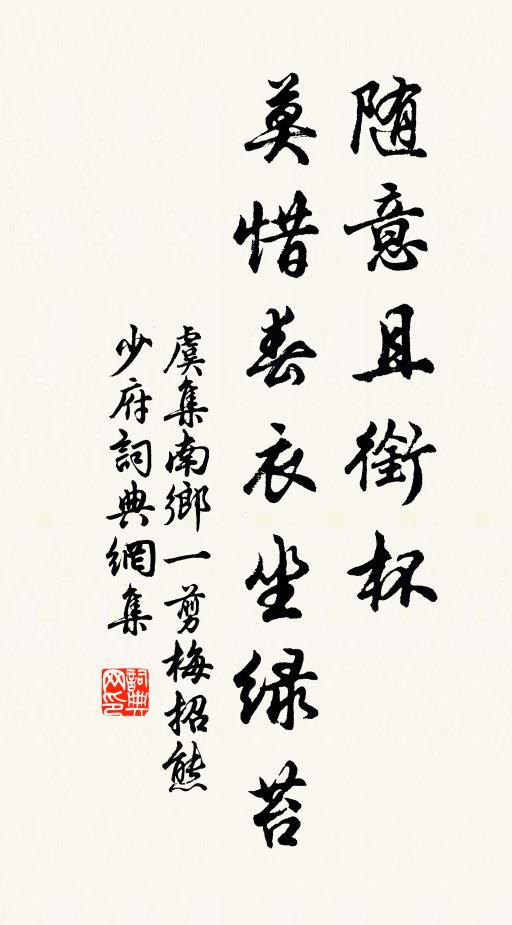 随意且銜杯
莫惜春衣坐绿苔
虞集南鄉一剪梅招熊
少府詞典網集
詞典网印